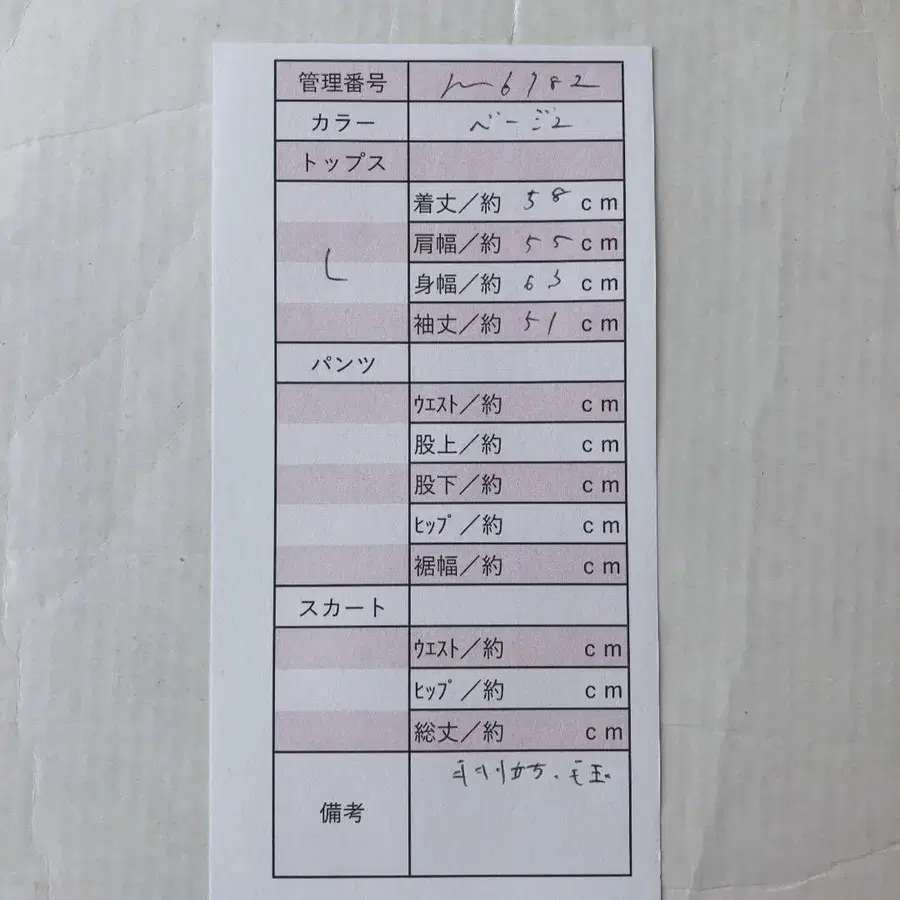 管理番号
カラー ベージュ
トップス
L
着丈／約 58 cm
肩幅／約 55 cm
身幅／約 63 cm
袖丈／約 51 cm
パンツ
ｳｴｽﾄ／約 cm
股上／約 cm
股下／約 cm
ﾋｯﾌﾟ／約 cm
裾幅／約 cm
スカート
ｳｴｽﾄ／約 cm
ﾋｯﾌﾟ／約 cm
総丈／約 cm
備考 毛羽立ち、毛玉